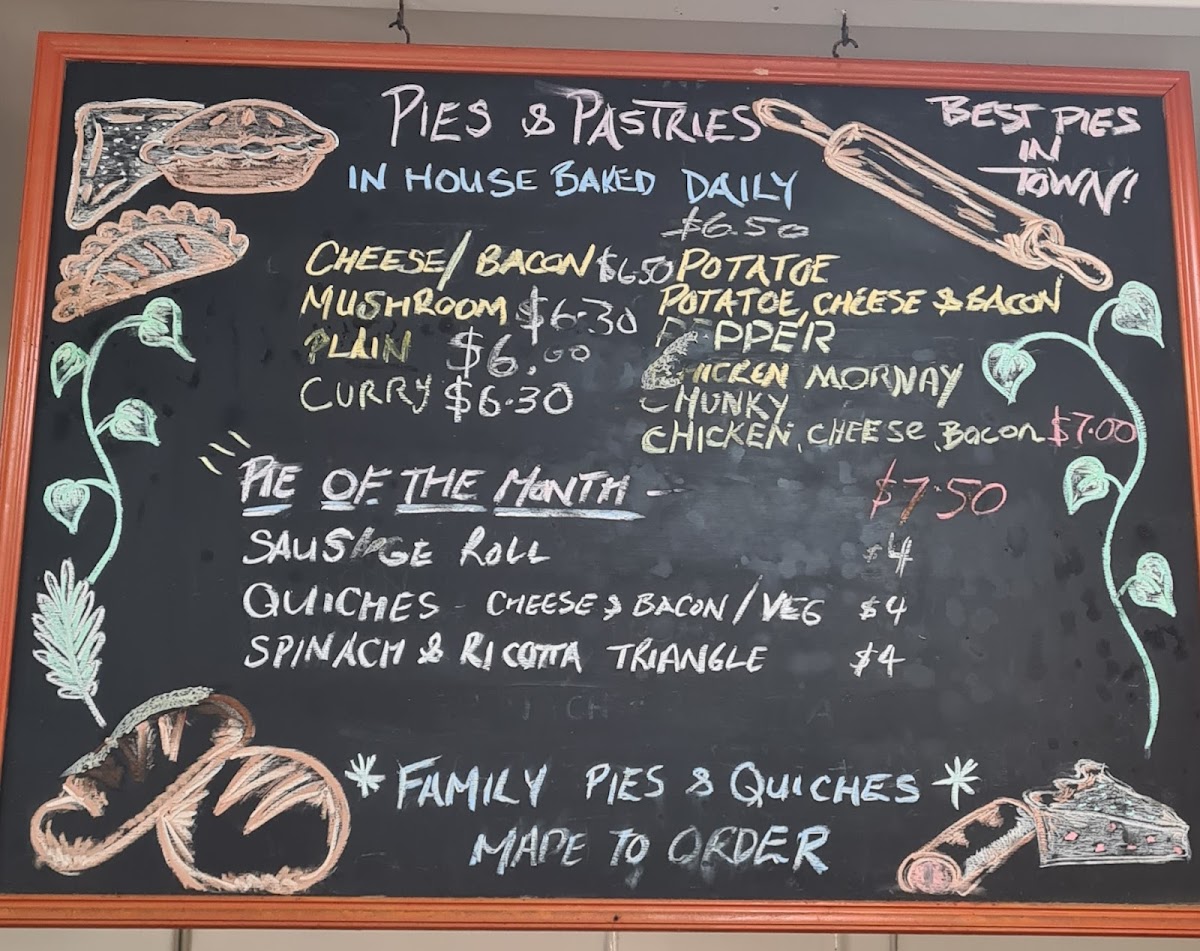 PIES & PASTRIES
BEST PIES
IN
TOWN!
IN HOUSE BAKED DAILY
$6.50
CHEESE/BACON $6.50
MUSHROOM $6.30
PLAIN $6.00
CURRY $6.30
POTATOE
POTATOE, CHEESE & BACON
PEPPER
CHICKEN MORNAY
CHUNKY
CHICKEN, CHEESE, BACON $7.00
PIE OF THE MONTH - $7.50
SAUSAGE ROLL $4
QUICHES - CHEESE & BACON/VEG $4
SPINACH & RICOTTA TRIANGLE $4
* FAMILY PIES & QUICHES *
MADE TO ORDER